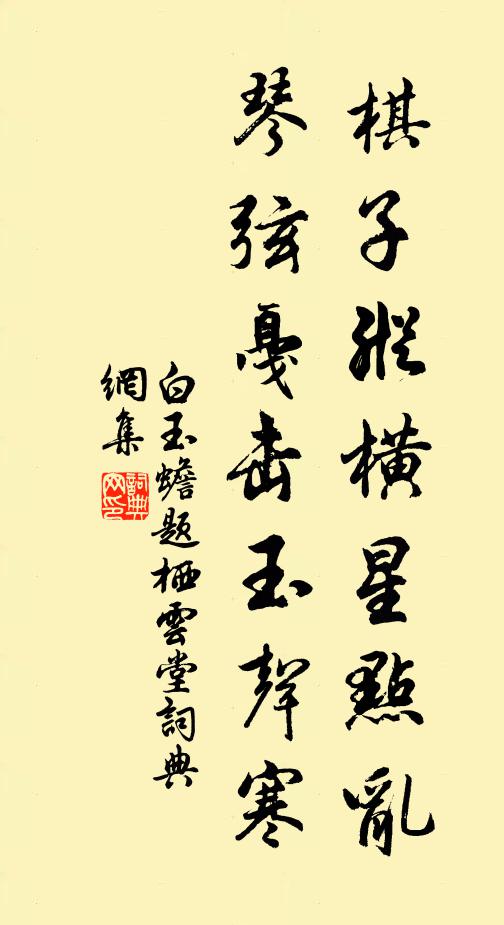 棋子縱橫星點亂
琴弦戛击玉聲寒
白玉蟾題栖雲堂詞典
網集
詞典
网印